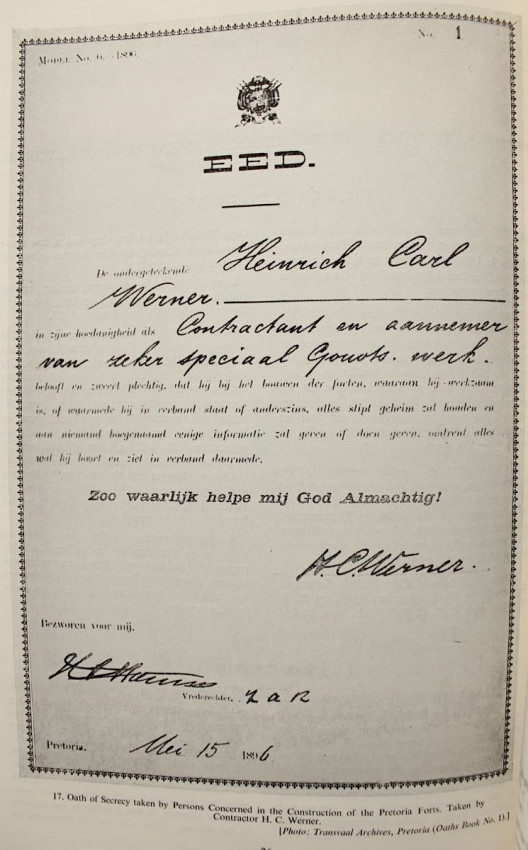 No. 1
Model No. 6, 1896.
EED.
De ondergeteekende Heinrich Carl
Werner.
in zijne hoedanigheid als Contractant en aannemer
van zeker speciaal Gouvts. werk.
belooft en zweert plechtig, dat hij bij het bouwen der forten, waaraan hij werkzaam
is, of waarmede hij in verband staat of anderszins, alles stipt geheim zal houden en
aan niemand hoegenaamd eenige informatie zal geven of doen geven, omtrent alles
wat hij hoort en ziet in verband daarmede.
Zoo waarlijk helpe mij God Almachtig!
H. C. Werner.
Bezworen voor mij,
Vrederechter, Z A R
Pretoria, Mei 15 1896
17. Oath of Secrecy taken by Persons Concerned in the Construction of the Pretoria Forts. Taken by
Contractor H. C. Werner.
[Photo: Transvaal Archives, Pretoria (Oaths Book No. 1).]